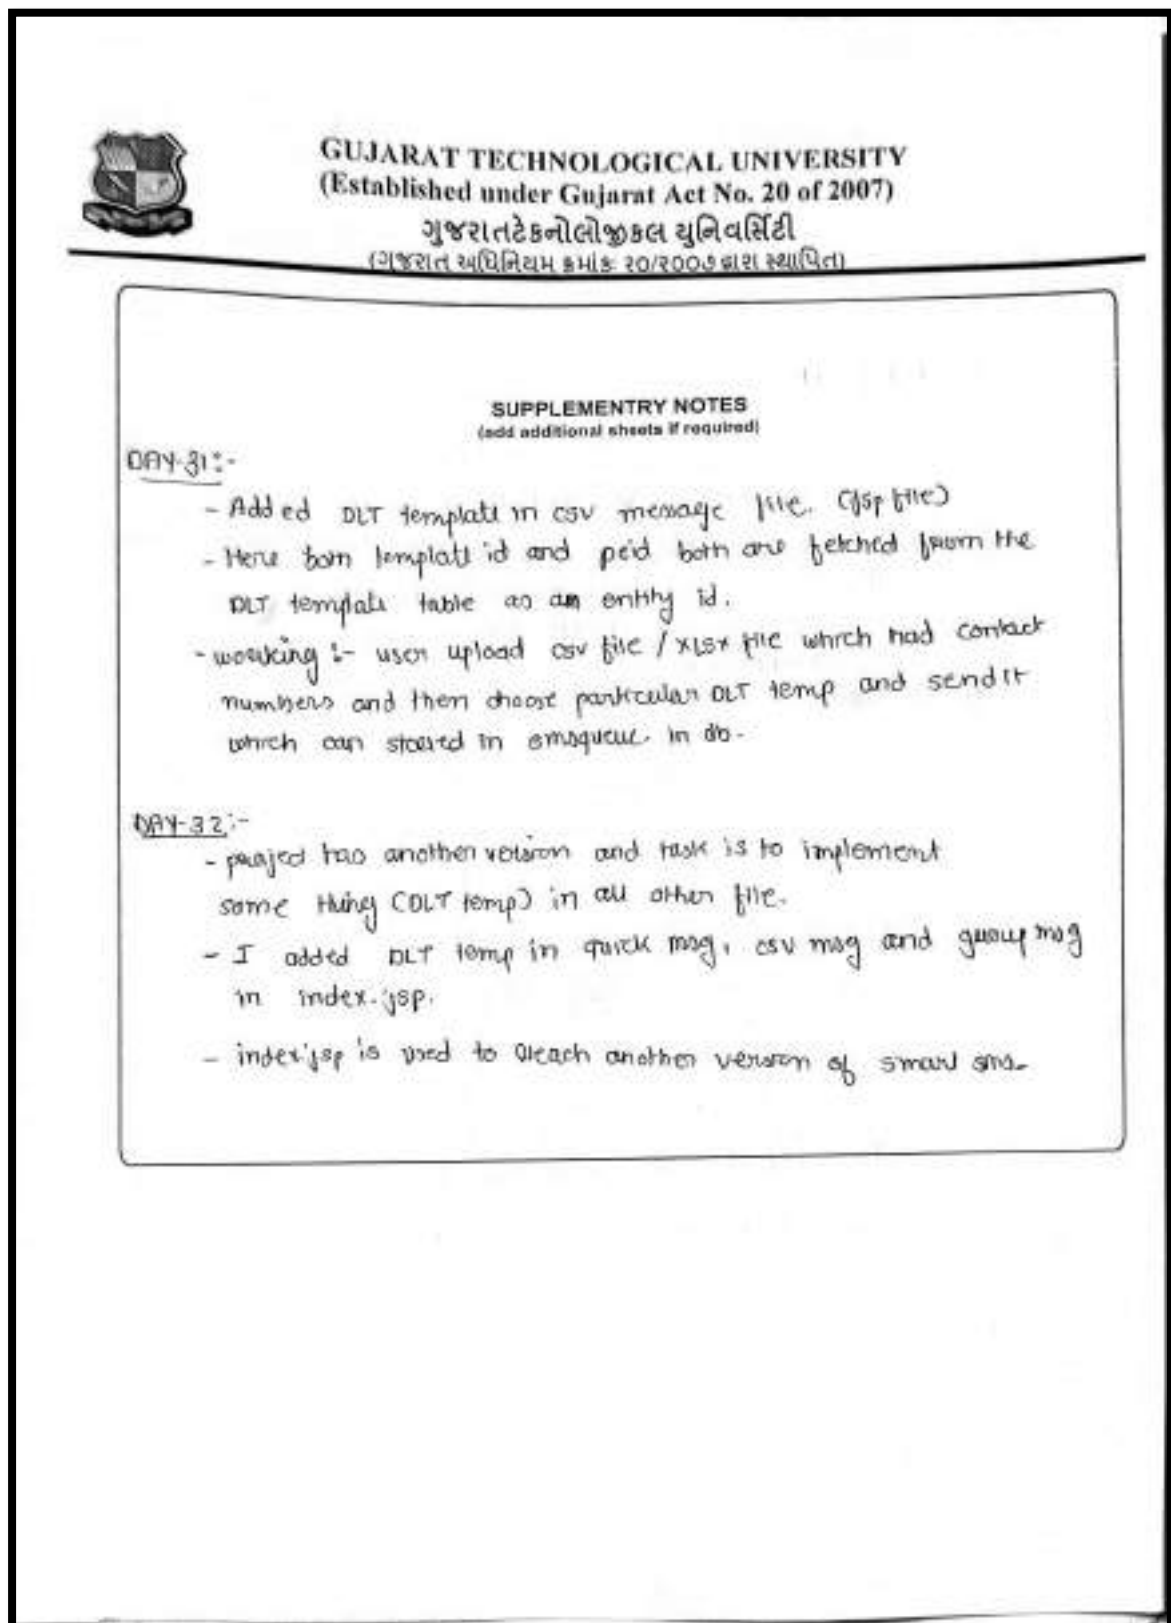 GUJARAT TECHNOLOGICAL UNIVERSITY
(Established under Gujarat Act No. 20 of 2007)
ગુજરાતટેકનોલોજીકલ યુનિવર્સિટી
(ગુજરાત અધિનિયમ ક્રમાંક: ૨૦/૨૦૦૭ દ્વારા સ્થાપિત)
SUPPLEMENTRY NOTES
(add additional sheets if required)
DAY-31:-
- Added DLT template in csv message file. (jsp file)
- Here both template id and peid both are fetched from the
DLT template table as an entity id.
- working :- user upload csv file / xlsx file which had contact
numbers and then choose particular DLT temp and send it
which can stored in smsqueue in db.
DAY-32:-
- project has another version and task is to implement
same thing (DLT temp) in all other file.
- I added DLT temp in quick msg, csv msg and group msg
in index.jsp.
- index.jsp is used to reach another version of smart sms.